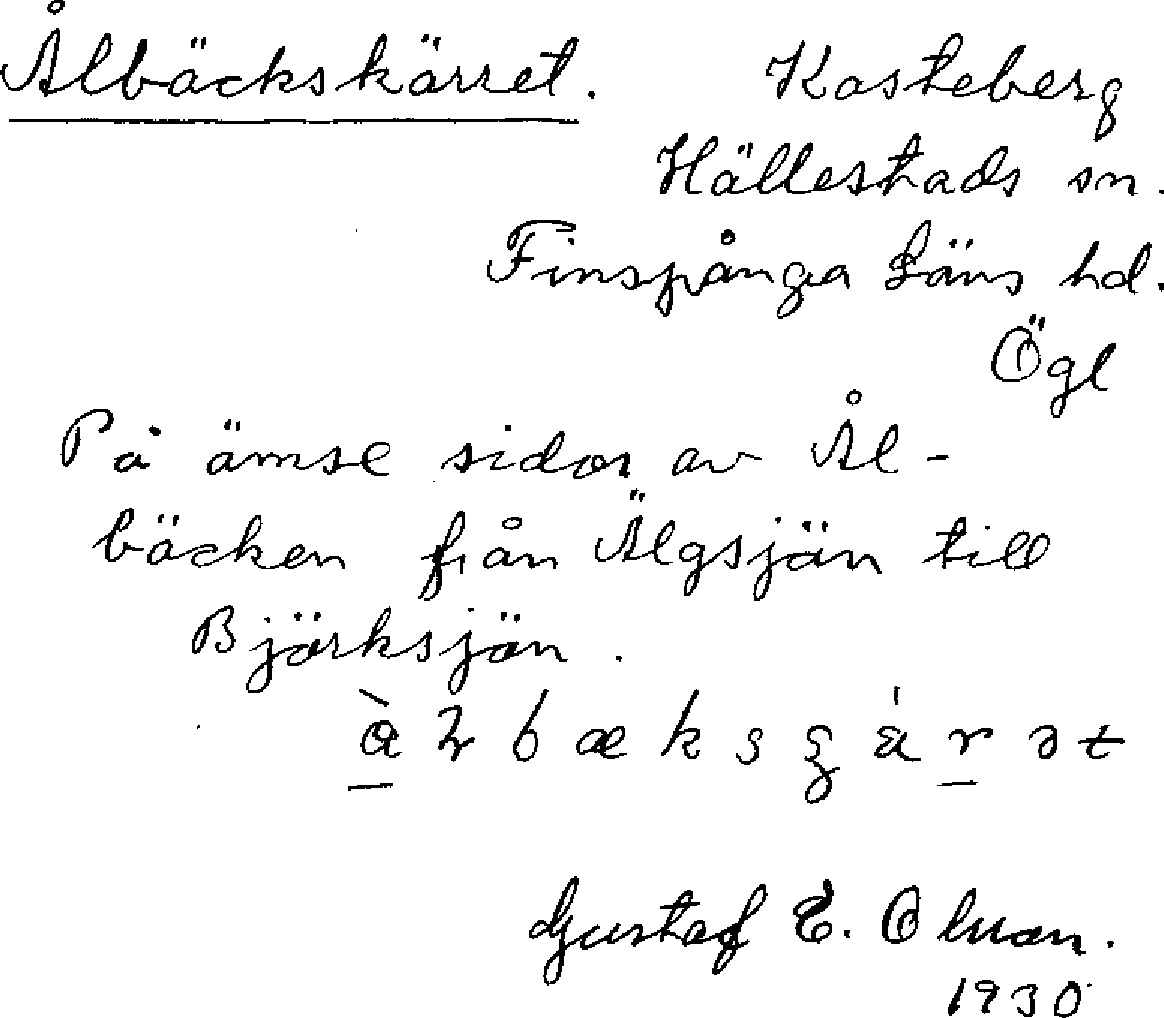 Ålbäckskärret. Kasteberg
Hällestads sn.
Finspånga Läns hd.
Ögl
På ömse sidor av Ål-
bäcken från Älgsjön till
Björksjön.
Gustaf E.
1930